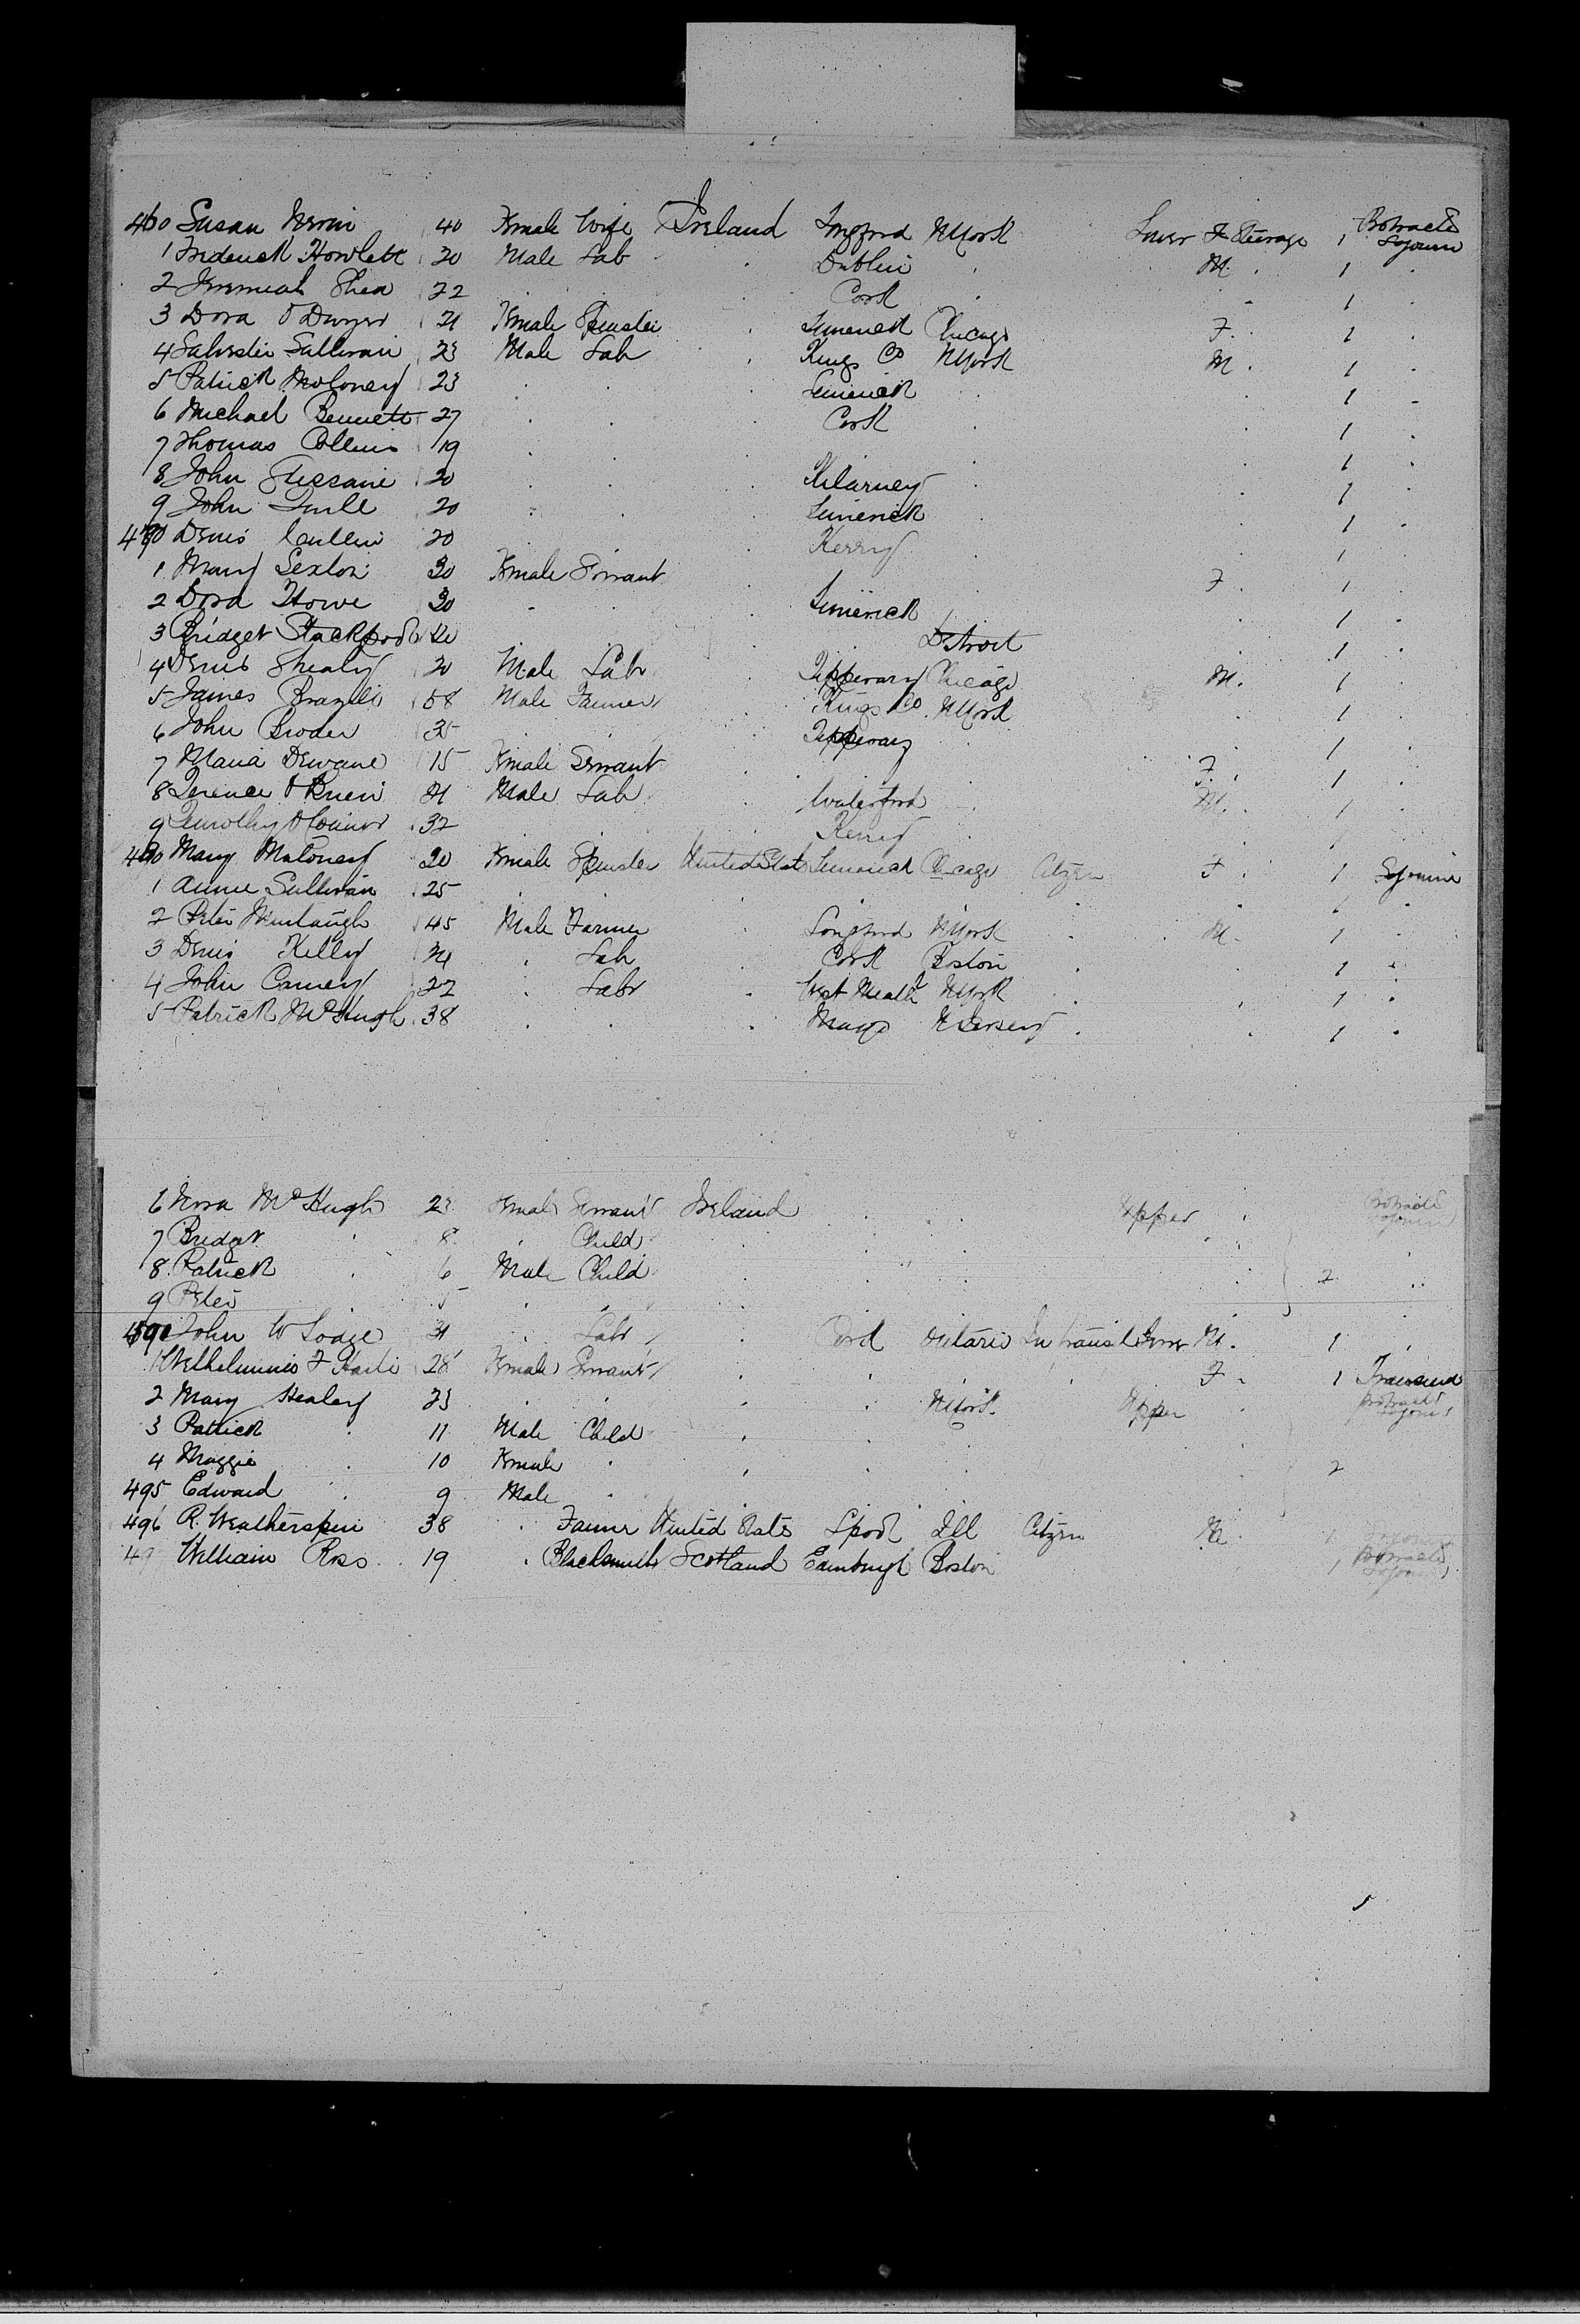 460 Susan 40 Female Wife Ireland Longford NYork Lower F Steerage 1 Protracted Sojourn
1 Frederick Howlett 20 Male Lab . Dublin . M. 1 .
2 Jeremiah Shea 22 . . . Cork . . 1 .
3 Dora O Dwyer 21 Female Spinster . Limerick Chicago F. 1 .
4 Sullivan 23 Male Lab . Kings Co NYork M. 1 .
5 Patrick Moloney 23 . . . Limerick . . 1 .
6 Michael Bennett 27 . . . Cork . . 1 .
7 Thomas Collins 19 . . . . . . 1 .
8 John 20 . . . Kilarney . . 1 .
9 John 20 . . . Limerick . . 1 .
470 Denis 20 . . . Kerry . . 1 .
1 Mary Sexton 30 Female Servant . . . F. 1 .
2 Dora Howe 30 . . . Limerick . . 1 .
3 Bridget Stackpool 20 . . . . Detroit . 1 .
4 Denis Shealy 20 Male Lab . Tipperary Chicago M. 1 .
5 James 58 Male Farmer . Kings Co. NYork . 1 .
6 John Broder 35 . . . Tipperary . . 1 .
7 Maria Dewane 15 Female Servant . . . F. 1 .
8 Terence O Brien 21 Male Lab . Waterford . M. 1 .
9 Timothy O Connor 32 . . . Kerry . . 1 .
480 Mary Maloney 20 Female Spinster United Stat Limerick Chicago Citizen F. 1 Sojourn
1 Annie Sullivan 25 . . . . . . . 1 .
2 Peter Murtaugh 45 Male Farmer . Longford NYork . M. 1 .
3 Denis Kelly 24 . Lab . Cork Boston . . 1 .
4 John Carney 27 . Labr . West Meath NYork . . 1 .
5 Patrick McHugh 38 . . . Mayo N Jersey . . 1 .
6 Nora McHugh 23 Female Servant Ireland . . Upper . Protracted Sojourn
7 Bridget . 8 . Child . . . . .
8 Patrick . 6 Male Child . . . . 2 .
9 Peter . 5 . . . . . . .
490 John W Lodge 31 . Labr . Cork Ontario In transit Lower M. 1 .
1 F 28 Female Servant . . . . F. 1 Transient
2 Mary Healey 23 . . . . NYork. Upper Protracted Sojourn
3 Patrick . 11 Male Child . . . .
4 Maggie . 10 Female . . . . . 2
495 Edward . 9 Male .
496 R. Weatherspin 38 . Farmer United States Lpool Ill Citizen M. 1 Sojourn
49 William Ross 19 . Blacksmith Scotland Edinburgh Boston 1 Protracted Sojourn